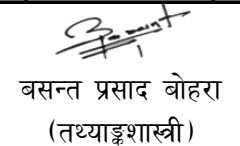 बसन्त प्रसाद बोहरा
(तथ्याङ्कशास्त्री)